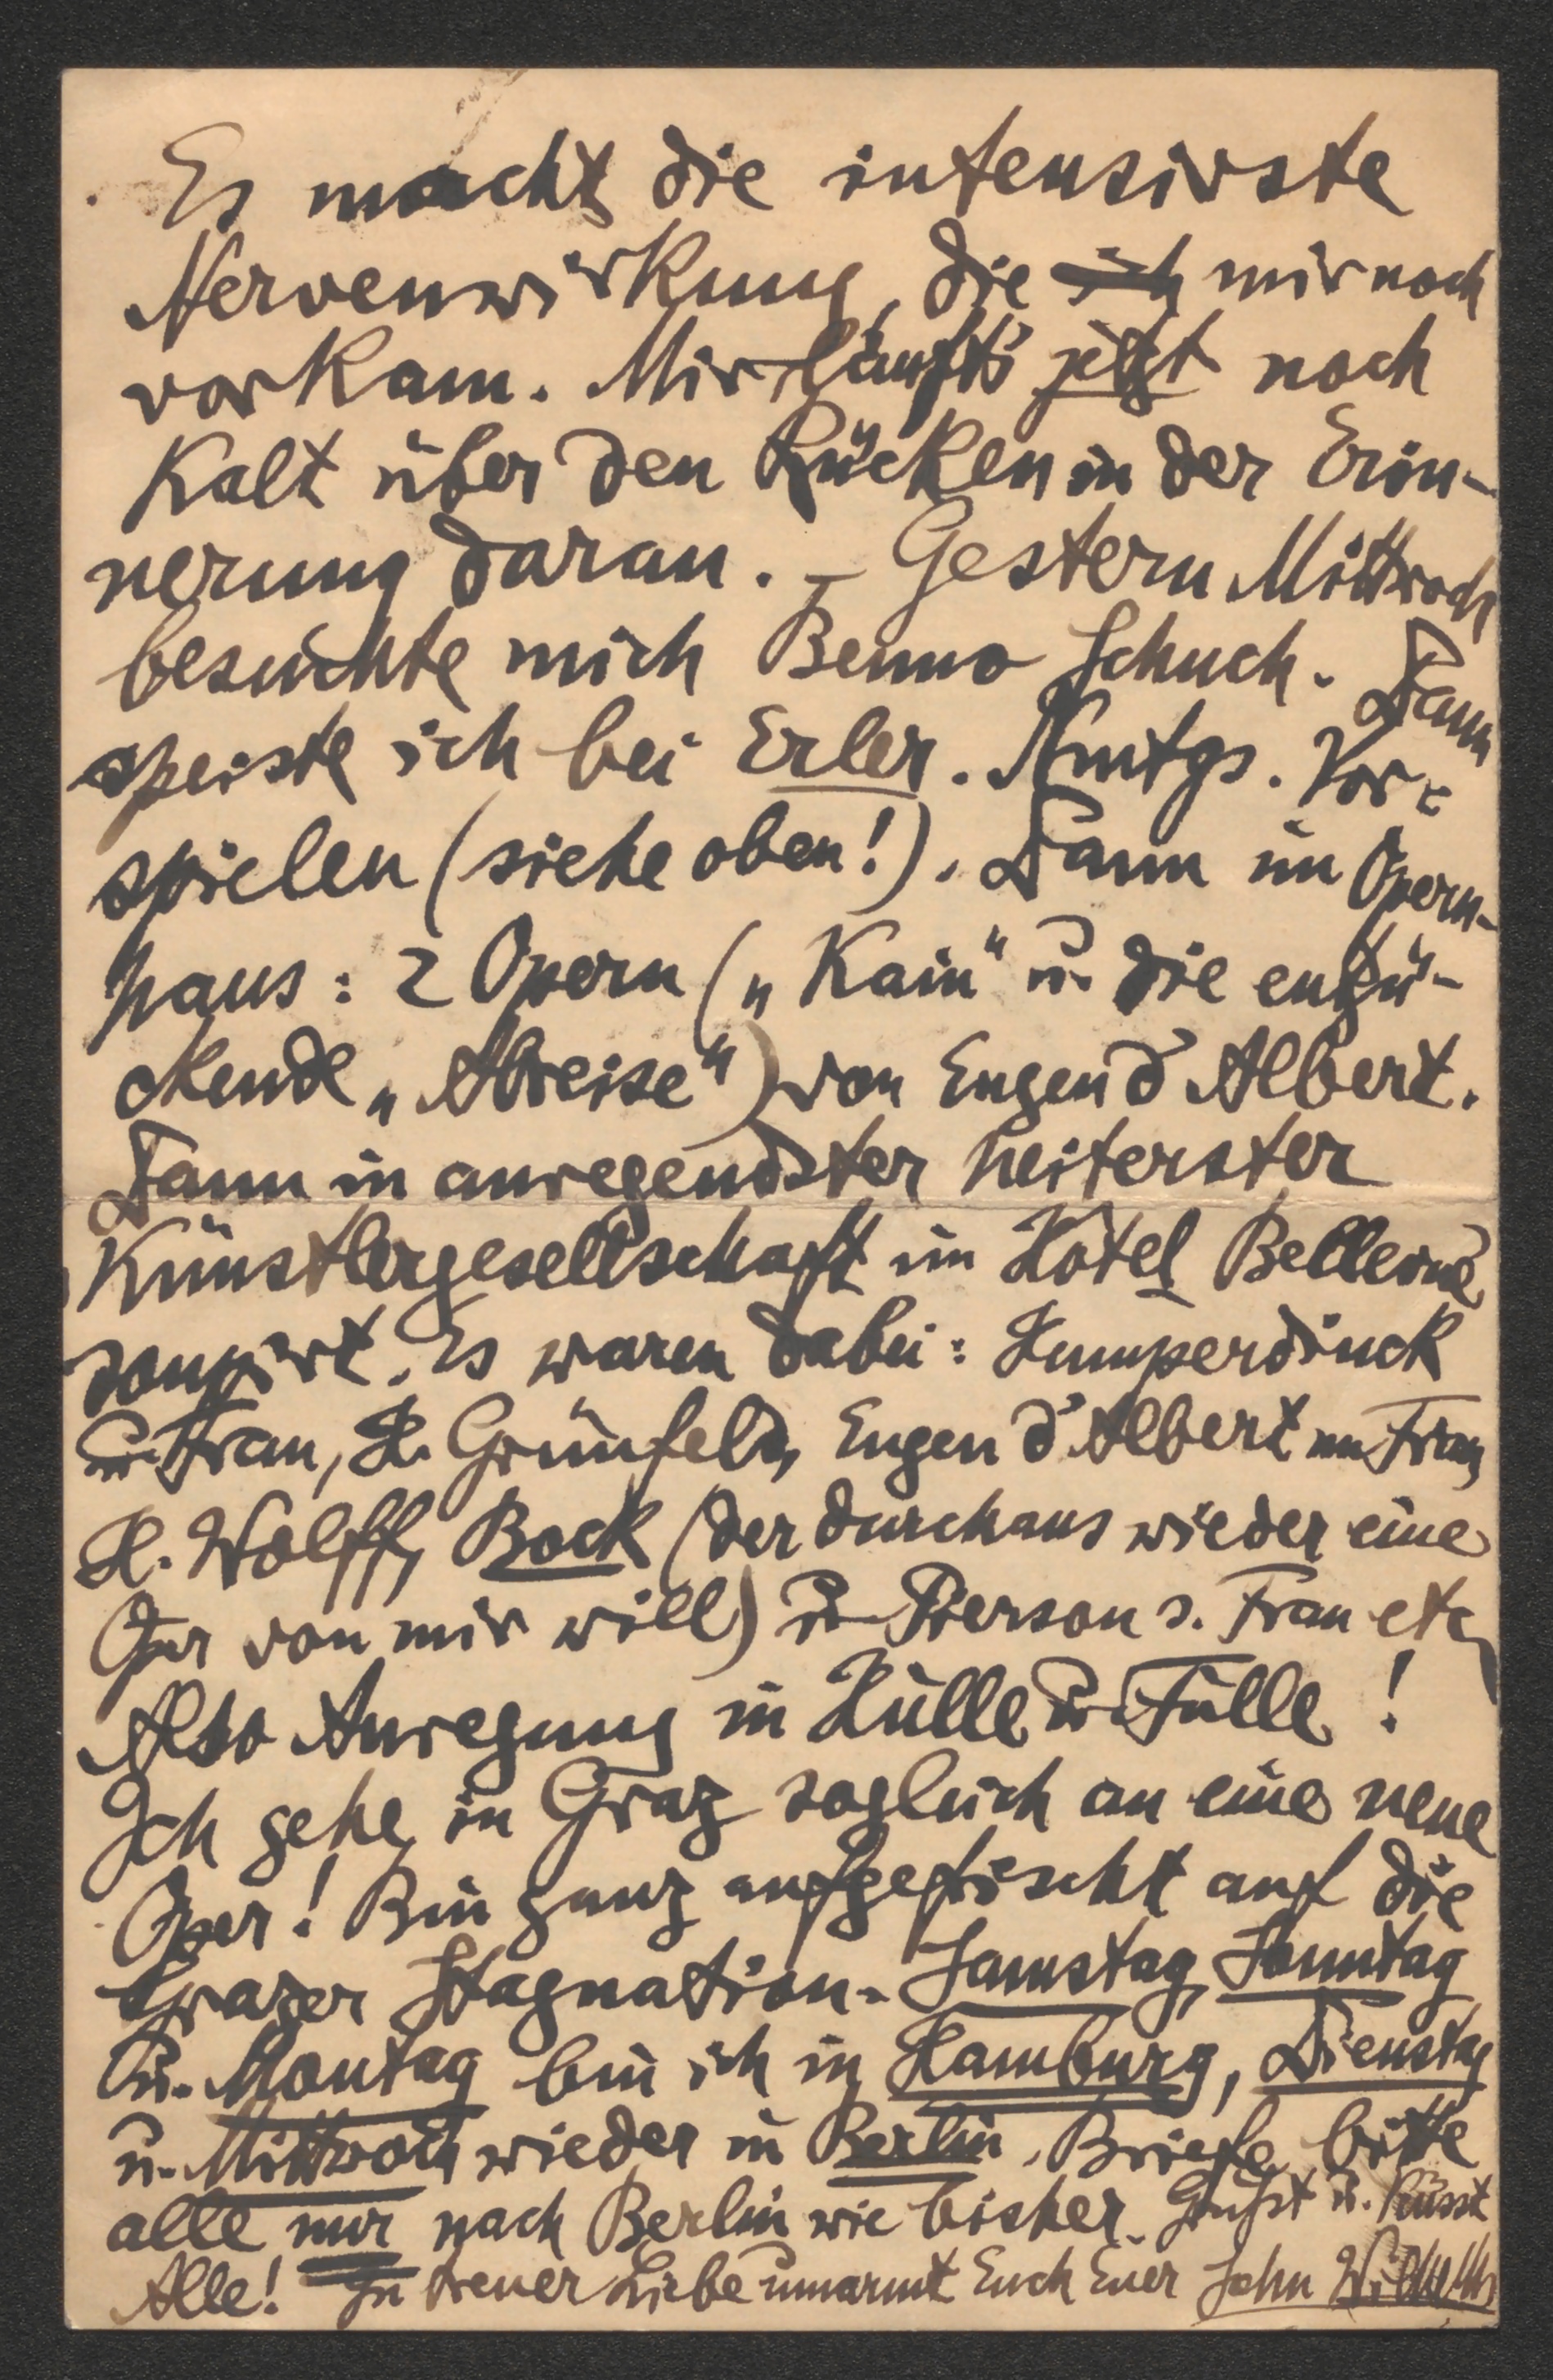 Es macht die intensivste
Nervenwirkung, die ich mir noch
vorkam. Mir läuft's jetzt noch
Kalt über den Rücken in der Erin-
nerung daran. – Gestern Mittwoch
besuchte mich Benno Schuch. Dann
speiste ich bei Erler. Nmitgs. Vor-
spielen (siehe oben!). Dann im Opern-
haus: 2 Opern („Kain“ u. die entzü-
ckende „Abreise“) von Eugen d'Albert.
Dann in anregendster heiterster
Künstlergesellschaft im Hôtel Bellevue
soupirt. Es waren dabei: Humperdinck
u. Frau, H. Grünfeld, Eugen d'Albert u. Frau,
H. Wolff, Bock (der durchaus wieder eine
Oper von mir will) u. Pierson s. Frau etc
Also Anregung in Hülle u. Fülle!
Ich gehe in Graz sogleich an eine neue
Oper! Bin ganz aufgefrischt auf die
Grazer Stagnation. Samstag, Sonntag
u. Montag bin ich in Hamburg, Dienstag
u. Mittwoch wieder in Berlin. Briefe bitte
alle nur nach Berlin wie bisher. Grüsst u. Küsst
Alle! In treuer Liebe umarmt Euch Euer Sohn Wilhelm